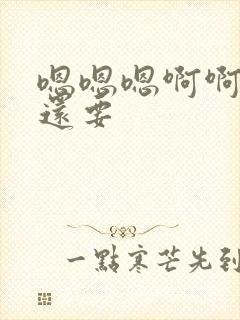 嗯嗯嗯啊啊
還要
一點寒芒先到